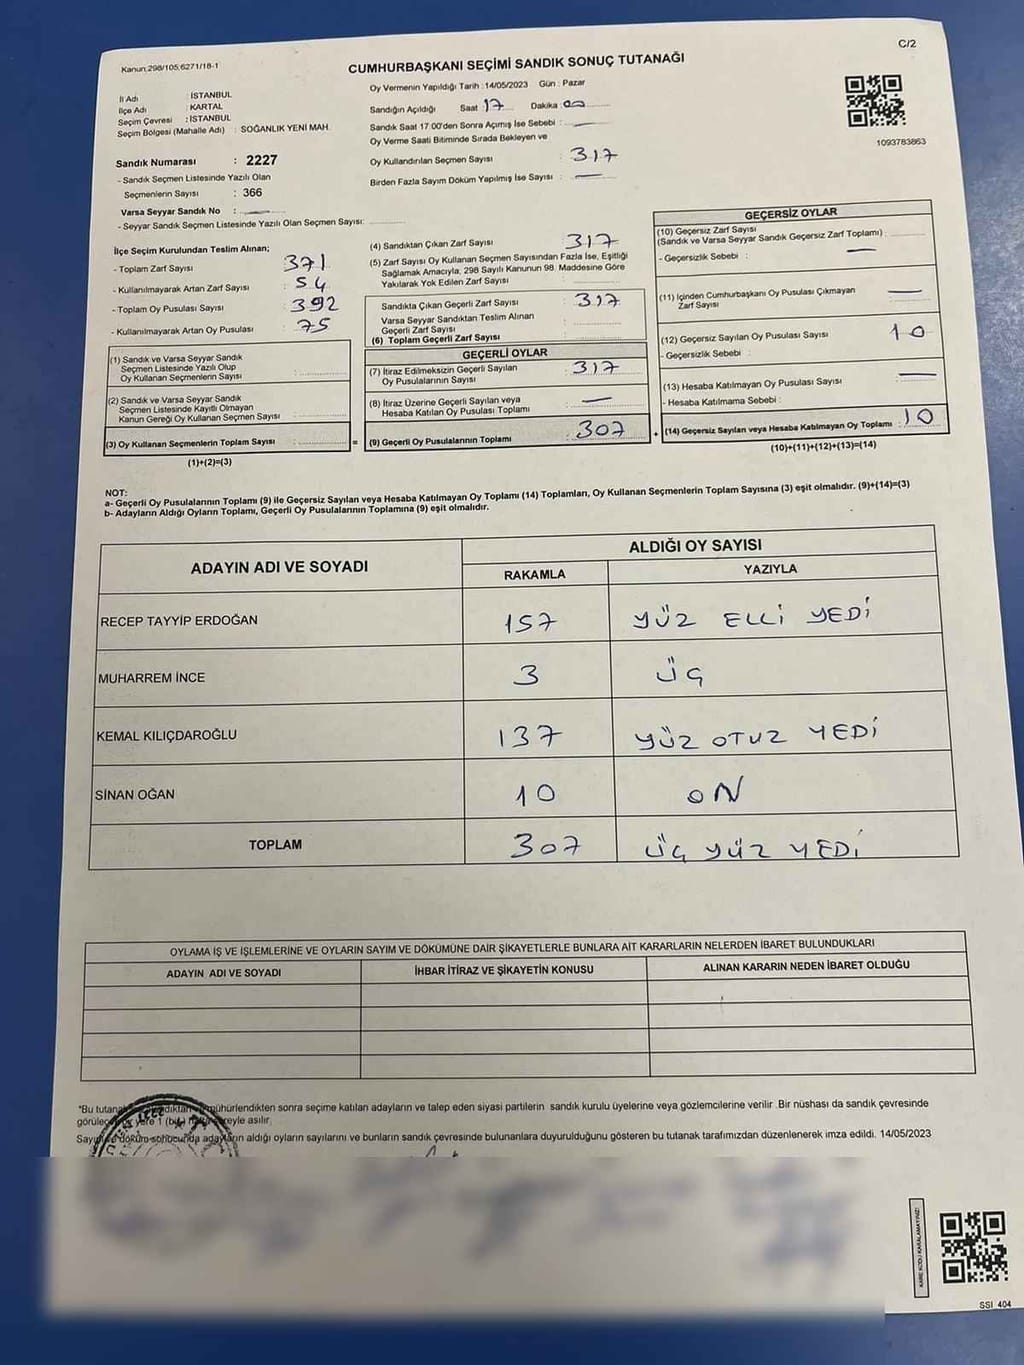 C/2
Kanun:298/105,6271/18-1
CUMHURBAŞKANI SEÇİMİ SANDIK SONUÇ TUTANAĞI
İl Adı : İSTANBUL
İlçe Adı : KARTAL
Seçim Çevresi : İSTANBUL
Seçim Bölgesi (Mahalle Adı) : SOĞANLIK YENİ MAH.
Oy Vermenin Yapıldığı Tarih : 14/05/2023 Gün : Pazar
Sandığın Açıldığı Saat : 17 Dakika : 00
Sandık Saat 17:00'den Sonra Açılmış İse Sebebi : —
Oy Verme Saati Bitiminde Sırada Bekleyen ve
Oy Kullandırılan Seçmen Sayısı : 317
Birden Fazla Sayım Döküm Yapılmış İse Sayısı : —
1093783863
Sandık Numarası : 2227
- Sandık Seçmen Listesinde Yazılı Olan
Seçmenlerin Sayısı : 366
Varsa Seyyar Sandık No : —
- Seyyar Sandık Seçmen Listesinde Yazılı Olan Seçmen Sayısı:
İlçe Seçim Kurulundan Teslim Alınan;
- Toplam Zarf Sayısı : 371
- Kullanılmayarak Artan Zarf Sayısı : 54
- Toplam Oy Pusulası Sayısı : 392
- Kullanılmayarak Artan Oy Pusulası : 75
(1) Sandık ve Varsa Seyyar Sandık
Seçmen Listesinde Yazılı Olup
Oy Kullanan Seçmenlerin Sayısı :
(2) Sandık ve Varsa Seyyar Sandık
Seçmen Listesinde Kayıtlı Olmayan
Kanun Gereği Oy Kullanan Seçmen Sayısı :
(3) Oy Kullanan Seçmenlerin Toplam Sayısı : =
(1)+(2)=(3)
(4) Sandıktan Çıkan Zarf Sayısı : 317
(5) Zarf Sayısı Oy Kullanan Seçmen Sayısından Fazla İse, Eşitliği
Sağlamak Amacıyla, 298 Sayılı Kanunun 98. Maddesine Göre
Yakılarak Yok Edilen Zarf Sayısı :
Sandıkta Çıkan Geçerli Zarf Sayısı : 317
Varsa Seyyar Sandıktan Teslim Alınan
Geçerli Zarf Sayısı :
(6) Toplam Geçerli Zarf Sayısı :
GEÇERLİ OYLAR
(7) İtiraz Edilmeksizin Geçerli Sayılan
Oy Pusulalarının Sayısı : 317
(8) İtiraz Üzerine Geçerli Sayılan veya
Hesaba Katılan Oy Pusulası Toplamı : —
(9) Geçerli Oy Pusulalarının Toplamı : 307 +
GEÇERSİZ OYLAR
(10) Geçersiz Zarf Sayısı
(Sandık ve Varsa Seyyar Sandık Geçersiz Zarf Toplamı) :
- Geçersizlik Sebebi : —
(11) İçinden Cumhurbaşkanı Oy Pusulası Çıkmayan
Zarf Sayısı : —
(12) Geçersiz Sayılan Oy Pusulası Sayısı : 10
- Geçersizlik Sebebi :
(13) Hesaba Katılmayan Oy Pusulası Sayısı : —
- Hesaba Katılmama Sebebi :
(14) Geçersiz Sayılan veya Hesaba Katılmayan Oy Toplamı : 10
(10)+(11)+(12)+(13)=(14)
NOT:
a- Geçerli Oy Pusulalarının Toplamı (9) ile Geçersiz Sayılan veya Hesaba Katılmayan Oy Toplamı (14) Toplamları, Oy Kullanan Seçmenlerin Toplam Sayısına (3) eşit olmalıdır. (9)+(14)=(3)
b- Adayların Aldığı Oyların Toplamı, Geçerli Oy Pusulalarının Toplamına (9) eşit olmalıdır.
ADAYIN ADI VE SOYADI
ALDIĞI OY SAYISI
RAKAMLA YAZIYLA
RECEP TAYYİP ERDOĞAN 157 YÜZ ELLİ YEDİ
MUHARREM İNCE 3 ÜÇ
KEMAL KILIÇDAROĞLU 137 YÜZ OTUZ YEDİ
SİNAN OĞAN 10 ON
TOPLAM 307 ÜÇ YÜZ YEDİ
OYLAMA İŞ VE İŞLEMLERİNE VE OYLARIN SAYIM VE DÖKÜMÜNE DAİR ŞİKAYETLERLE BUNLARA AİT KARARLARIN NELERDEN İBARET BULUNDUKLARI
ADAYIN ADI VE SOYADI İHBAR İTİRAZ VE ŞİKAYETİN KONUSU ALINAN KARARIN NEDEN İBARET OLDUĞU
*Bu tutanak mühürlendikten sonra seçime katılan adayların ve talep eden siyasi partilerin sandık kurulu üyelerine veya gözlemcilerine verilir. Bir nüshası da sandık çevresinde
görülecek yere 1 (bir) süreyle asılır.
Sayım ve döküm sonucunda adayların aldığı oyların sayılarını ve bunların sandık çevresinde bulunanlara duyurulduğunu gösteren bu tutanak tarafımızdan düzenlenerek imza edildi. 14/05/2023
KARE KODU KARALAMAYINIZ!
SSI 404